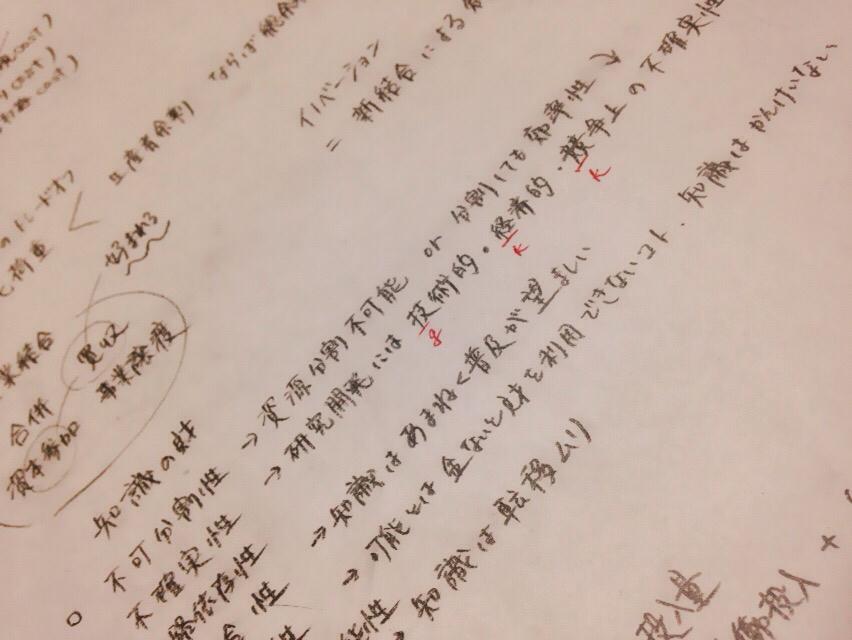 cost)
cost)
cost)
ならば
生産者余剰
イノベーション
= 新結合による
のトレードオフ
好まれる
結合
合併
買収
事業譲渡
資本参加
知識の財
○ 不可分割性 → 資源分割不可能 or 分割しても 効率性
不確実性 → 研究開発には 技術的・経済的・競争上の不確実性
g
K
K
経依存性 → 知識はあまねく普及が望ましい
合性 → 可能とは 金ないと財を利用できないコト、知識はかんけいない
能性 → 知識は転移ムリ
投入量
投入 +